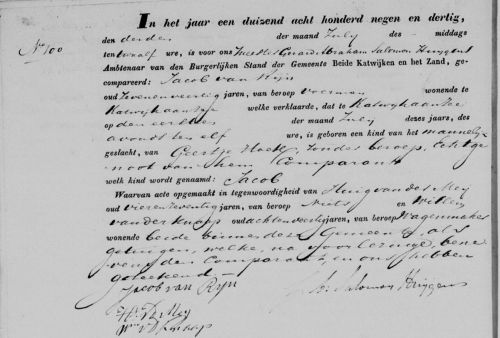 No 100
In het jaar een duizend acht honderd negen en dertig,
den derden der maand July des middags
ten twaalf ure, is voor ons Abraham Salomon
Ambtenaar van den Burgerlijken Stand der Gemeente Beide Katwijken en het Zand, ge-
compareerd: Jacob van Rijn
oud zevenenveertig jaren, van beroep voerman wonende te
Katwijk aan Zee welke verklaarde, dat te Katwyk aan Zee
op den eersten der maand July dezes jaars, des
avonds ten elf ure, is geboren een kind van het mannelyk
geslacht, van Geertje zonder beroep, Echtge-
noot van hem Comparant
welk kind wordt genaamd: Jacob
Waarvan acte opgemaakt in tegenwoordigheid van Huig van der Mey
oud vierenzeventig jaren, van beroep Niets en Willem
van der Knaap oud achtenveertig jaren, van beroep Wagenmaker
wonende beide binnen deze Gemeente, als
getuigen welke, na voorlezinge, bene-
vens den Comparant en ons hebben
geteekend
Jacob van Rijn
Salomon